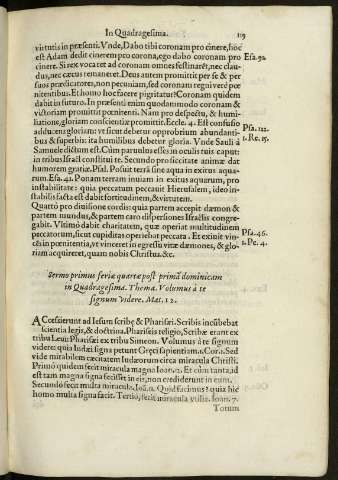 In Quadragesima. 119
virtutis in præsenti. Vnde, Dabo tibi coronam pro cinere, hoc
est Adam dedit cinerem pro corona, ego dabo coronam pro
cinere. Si rex vocaret ad coronam omnes festinarēt, nec claudus, nec cæcus remaneret. Deus autem promittit per se & per
suos prædicatores, non pecuniam, sed coronam regni verè pœ
nitentibus. Et homo hoc facere pigritatur? Coronam quidem
dabit in futuro. In præsenti enim quodammodo coronam &
victoriam promittit pœnitenti. Nam pro despectu, & humiliatione, gloriam consciētiæ promittit. Eccle. 4. Est confusio
adducens gloriam: vt sicut debetur opprobrium abundantibus & superbis: ita humilibus debetur gloria. Vnde Sauli à
Samuele dictum est. Cùm paruulus esses in oculis tuis caput
in tribus Israel constitui te. Secundo pro siccitate animæ dat
humorem gratiæ. Psal. Posuit terrā sine aqua in exitus aquarum. Esa. 41. Ponam terram inuiam in exitus aquarum, pro
instabilitate: quia peccatum peccauit Hierusalem, ideo instabilis facta est dabit fortitudinem, & virtutem.
Quartò pro diuisione cordis: quia partem accepit dæmon &
partem mundus, & partem caro dispersiones Israelis congregabit. Vltimò dabit charitatem, quæ operiat multitudinem
peccatorum, sicut cupiditas operiebat peccata. Et exinit vincēs in pœnitentia, vt vinceret in egressu vitæ dæmones, & gloriam acquireret, quam nobis Christus. &c.
Esa. 92.
Psa. 122.
1. Re. 15.
Psa. 46.
1. Pe. 4.
Sermo primus feriæ quartæ post primā dominicam
in Quadragesima. Thema. Volumus à te
signum videre. Mat. 12.
ACcesserunt ad Iesum scribę & Pharisæi. Scribis incūbebat
scientia legis, & doctrina. Pharisæis religio, Scribæ erant ex
tribu Leui: Pharisæi ex tribu Simeon. Volumus à te signum
videre: quia Iudæi signa petunt Gręci sapientiam. 1. Cor. 1. Sed
vide mirabilem cæcitatem Iudæorum circa miracula Christi.
Primò quidem fecit miracula magna Ioan. 12. Et cùm tanta, id
est tam magna signa fecisset in eis, non crediderunt in eum.
Secundò fecit multa miracula. Ioā. 11. Quid facimus? quia hic
homo multa signa facit. Tertiò, fecit miracula vtilia. Ioan. 7.
Totum